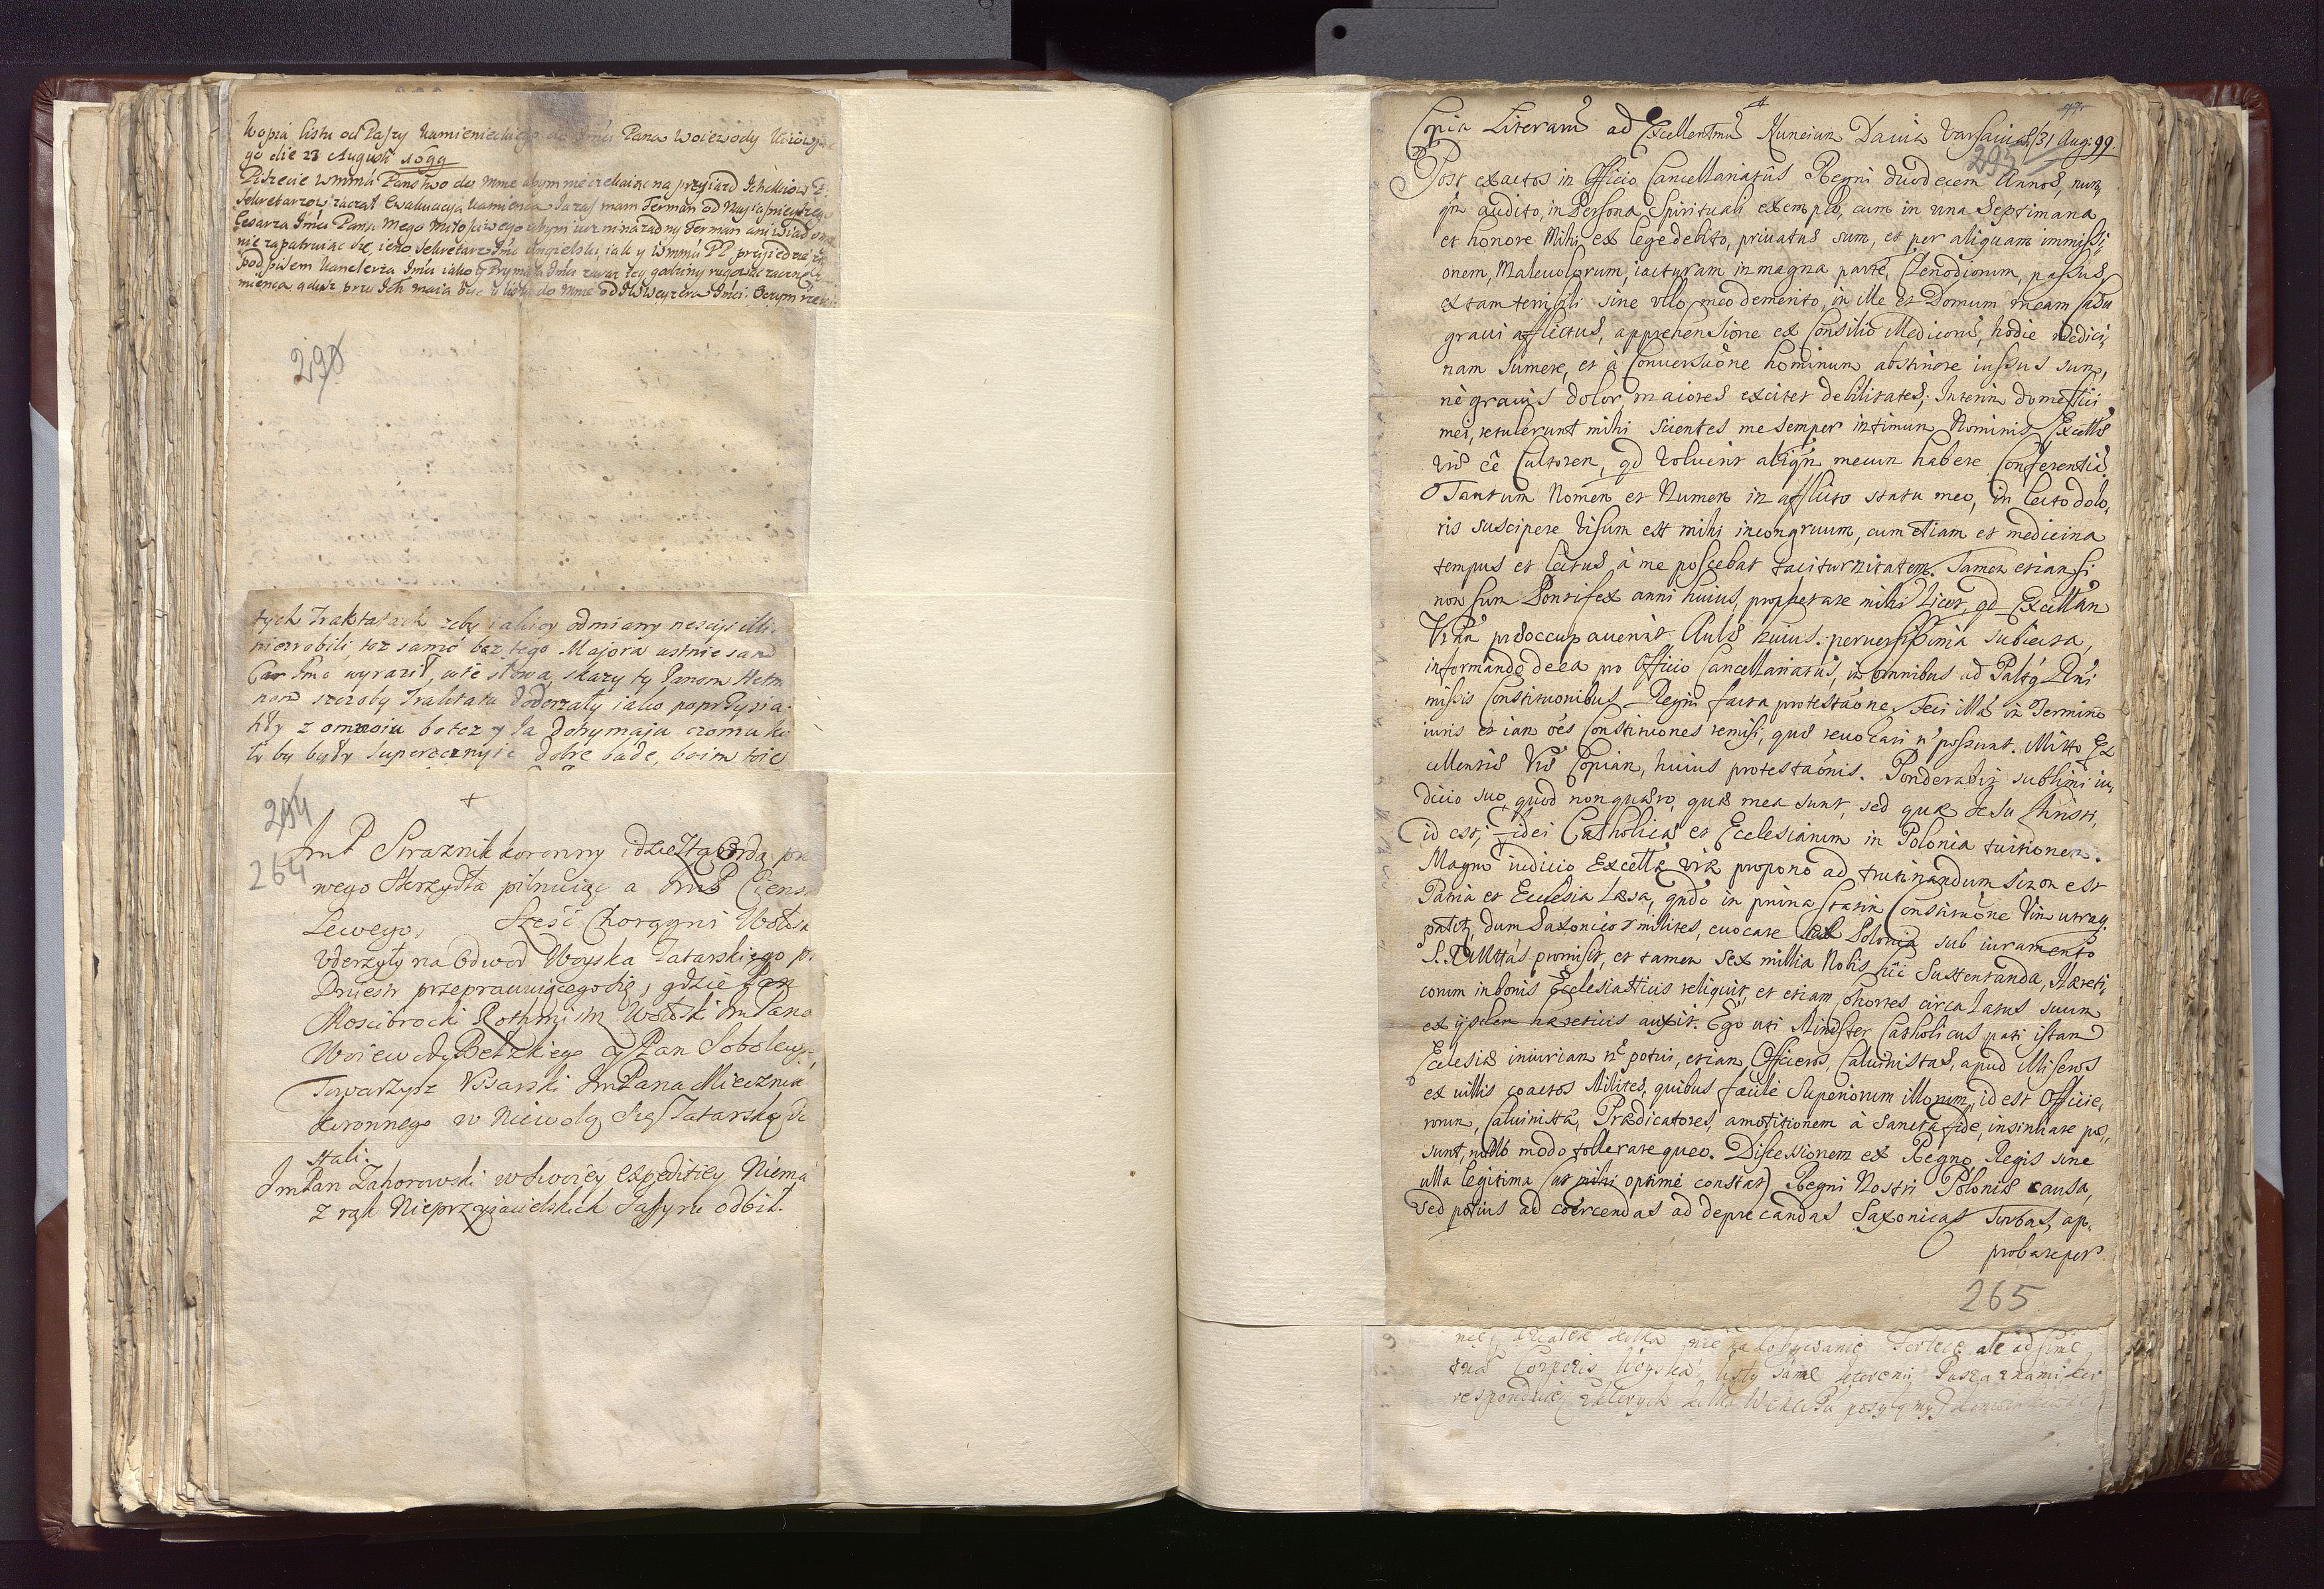 Kopia listu od Paszy Kamienieckiego do Jmci Pana Woiewody Kiiowskie
go die 23 Augusti 1699
Piszecie WmMci Panstwo do mnie abym nie czekaiąc na przyiazd Ichmciow P.
Sekretarzow zaczął Ewakuacyą Kamienca Ia zas mam Ferman od Nayiasnieyszego
Cesarza Jmci Pana mego Miłosciwego abym
nie zapatruiąc się, ieno Sekretarz Jmci Angielski iako y WmMci PP przyiedzie
podpisem Kanclerza Jmci iako y Prymasa Jmci zaraz tey godziny
mienca gdysz przy Ich maią bydz y listy do mnie od Wezyra Jmci. Oczym
290
tych Traktatach zeby iakiey odmiany
nie zrobili, toz samo bez tego Majora ustnie sam
Car Jmc wyraził, w te słowa, skazy ty Panom Hetm
nom szczoby Traktatu doderzały iako poprzysia
hły z omnoiu botez y Ia dotrymaju czomu ko
ły by były supereczny ie dobre bude, boim toie
+
294
264
JmP Straznik koronny idzie za Ordą pra
wego Skrzydła pilnuiąc a JmP
Lewego, Szesć Chorągwi Wołosk
Uderzyły na Odwod Woyska Tatarskiego prz
Dniestr przeprawuiącego się, gdzie Pan
Moscibrocki Rothmistrz Wołoski JmPana
Woiewody Bełzkiego y Pan Sobolews
Towarzysz Usarski JmPana Miecznika
koronnego w Niewolą się Tatarską do
stali.
JmPan Zahorowski w swoiey expeditiey Niema
z rąk Nieprzyiacielskich Jassyru odbił.
Copia Literarũ ad Excellentmũ Nuncium Davia Varsaviæ 31 Aug: 99.
293
Post exactos in Officio Cancellariatus Regni duodecim Annos, nunq̃
qm̃ audito, in Persona Spirituali exemplo, cum in una Septimana
et honore Mihi ex lege debito, privatus sum, et per aliquam immissi,
onem, Malevolorum, iacturam in magna parte, Clenodiorum, passus
ex tam terribili sine ullo meo demerito, in me et Domum meam casu
gravi afflictus, apprehensione ex Consilio Medicorũ, hodie Medici,
nam sumere, et à Conversatione hominum abstinere iussus sum,
nè gravis dolor, maiores excitet debilitates; Interim domestici
mei, retulerunt mihi scientes me semper intimum Nominis Excellæ
Vræ ẽe Cultorem, qd voluerit aliq̃m mecum habere Conferentiã
Tantum Nomen et Numen in afflicto statu meo, in lecto dolo,
ris suscipere visum est mihi incongruum, cum etiam et medicina
tempus et lectus, à me poscebat taciturnitatem. Tamen etiamsi
non sum Pontifex anni huius, prophetare mihi licet, qd Excellam
Vrãm præoccupaverint Aulæ huius perversissima subiecta,
informando de ea pro Officio Cancellariatus, in omnibus ad
missis Constitutionibus Regni facta protestaõne. Feci illã in Termino
iuris et iam oẽs Constitutiones remisi, quæ revocari ñ possunt. Mitto Ex
cellentiæ Vræ Copiam, huius protestaõnis. Ponderabit sublimi iu,
dicio suo, quod non quæro, quæ mea sunt, sed quæ Jesu Christi,
id est, Fidei Catholicæ et Ecclesiarum in Polonia tuitionem.
Magno iudicio Excellæ Vræ propono ad trutinandum si non est
Patria et Ecclesia læsa, qũdo in prima statim Constituõne Vim utraq
patit, dum Saxonicos milites, evocare ex Polonia sub iuramento
S. R. Mttas promisit, et tamen Sex millia Nobis hic Sustentanda, Hæreti,
corum in bonis Ecclesiasticis reliquit, et etiam, Cohortes circa latus suum
ex ijsdem hæreticis auxit. Ego uti Minister Catholicus pati istam
Ecclesiæ iniuriam ñ potui, etiam Officeros, Calvinistas, apud Miseros
ex villis coactos Milites, quibus facile Superiorum illorum, id est Officie,
rorum, Calvinistã, Prædicatores, amotitionem à Sancta fide, insinuare pos,
sunt, nullo modo tollerare queo. Discessionem ex Regno Regis sine
ulla legitima (ut mihi optimè constat) Regni Nostri Poloniæ causa,
sed potius ad coërcendas ad deprecandas Saxonicas Turbas, ap,
probare per
265
responduie, z ktorych kilka